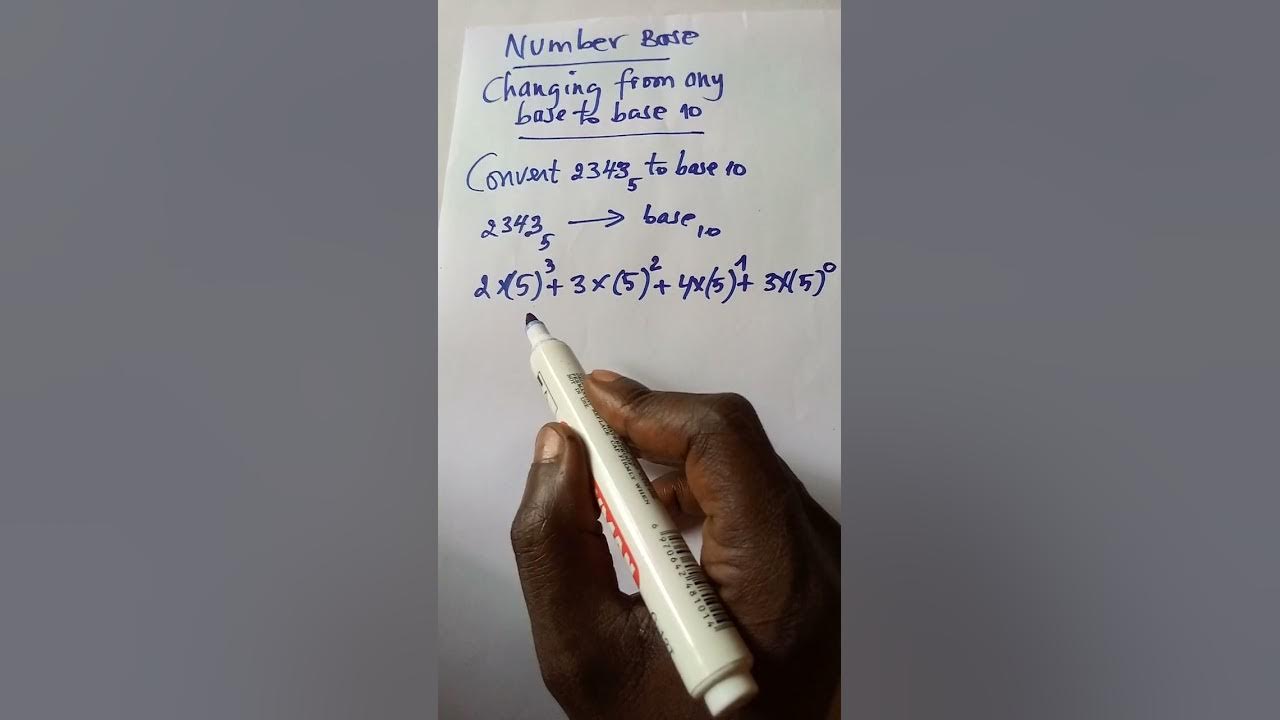 Number Base
Changing from any
base to base 10
Convert 2343₅ to base 10
2343₅ → base₁₀
2×(5)³ + 3×(5)² + 4×(5)¹ + 3×(5)⁰
6 970642 481014